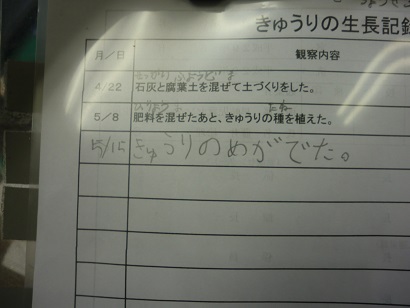 きゅうりの生長記録
月/日 観察内容
4/22 石灰と腐葉土を混ぜて土づくりをした。
ひりょう たね
5/8 肥料を混ぜたあと、きゅうりの種を植えた。
5/15 きゅうりのめがでた。